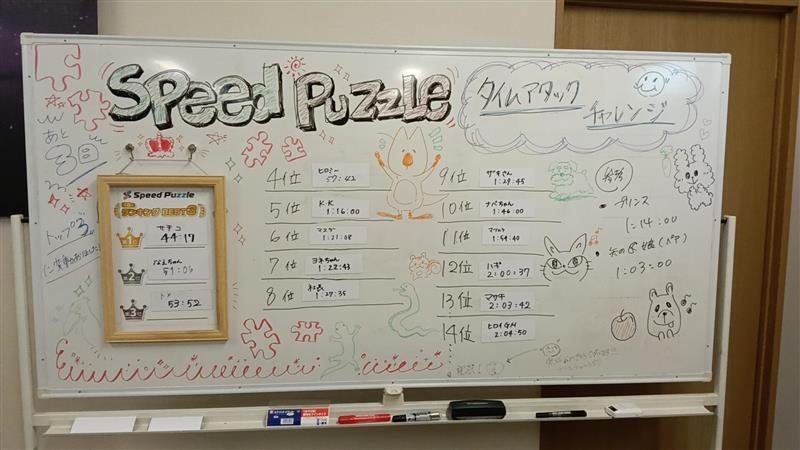 Speed Puzzle
タイムアタック
チャレンジ
あと
3日
トップ3
Speed Puzzle
ランキング BEST
1
サチコ
44:17
2
なえちゃん
51:06
3
53:52
4位 ヒロミー 57:42
5位 K.K 1:16:00
6位 マスダ 1:21:08
7位 ヨネちゃん 1:22:43
8位 1:27:35
9位 サキさん 1:29:45
10位 ナベちゃん 1:46:00
11位 1:54:40
12位 ハギ 2:00:37
13位 マサキ 2:03:42
14位 ヒロイGM 2:04:50
・プリンス
1:14:00
・矢の口姫(ペア)
1:03:00